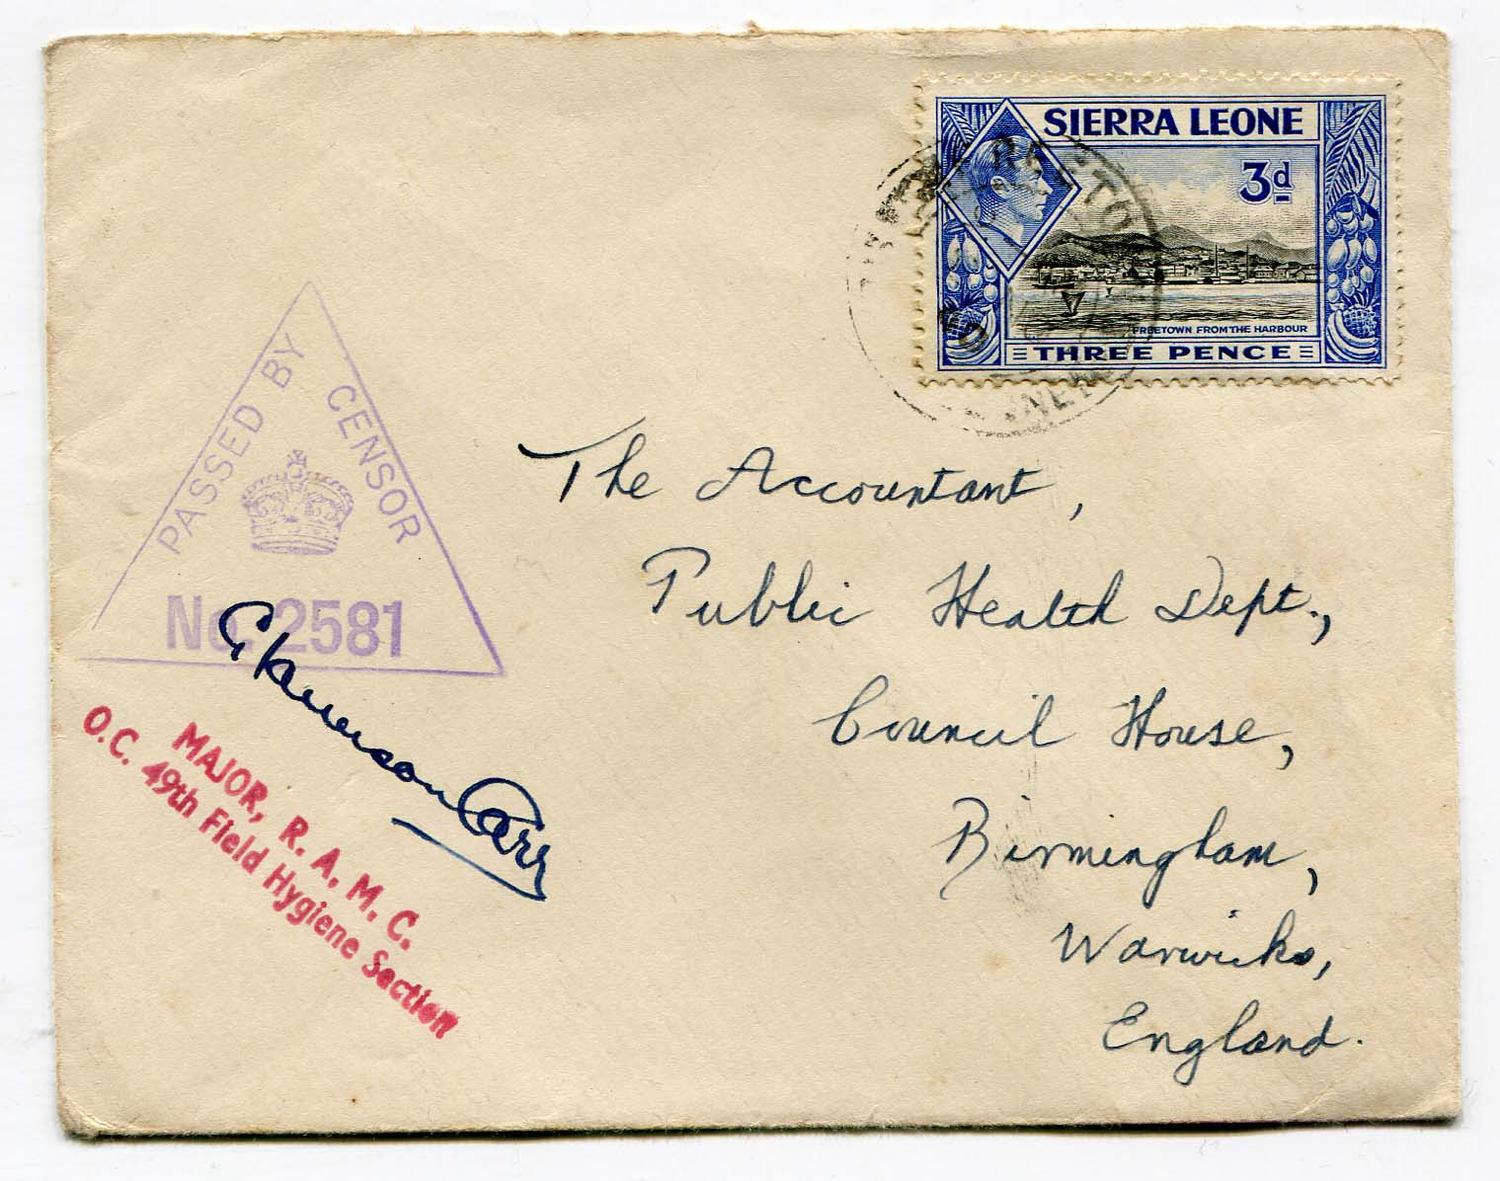 SIERRA LEONE
3d
FREETOWN FROM THE HARBOUR
THREE PENCE
PASSED BY CENSOR
No. 2581
MAJOR, R. A. M. C.
O.C. 49th Field Hygiene Section
The Accountant,
Public Health Dept.,
Council House,
Birmingham,
Warwicks,
England.